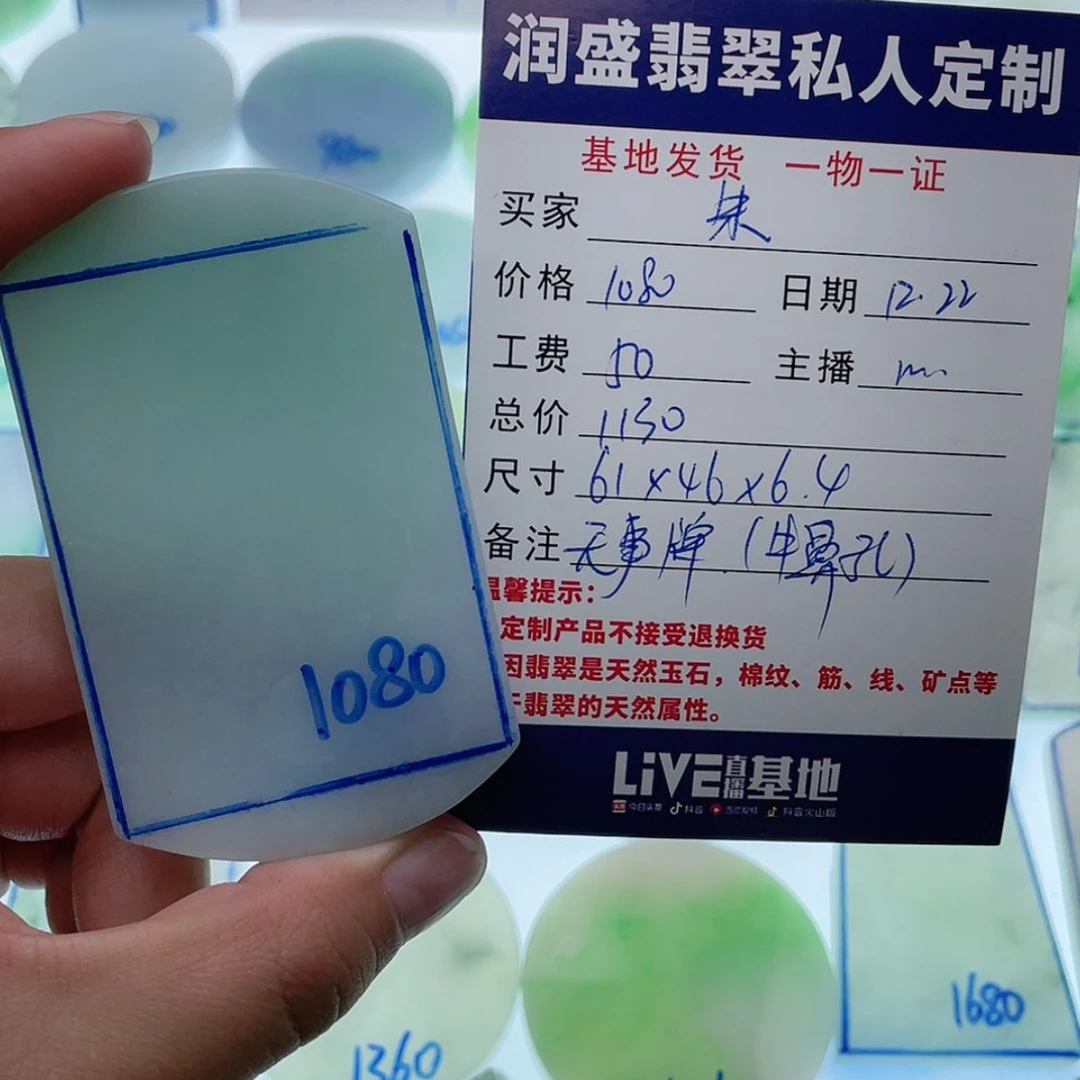 润盛翡翠私人定制
基地发货 一物一证
买家 朱
价格 1080 日期 12.22
工费 50 主播
总价 1130
尺寸 61×46×6.4
备注 无事牌(牛鼻孔)
温馨提示:
定制产品不接受退换货
因翡翠是天然玉石，棉纹、筋、线、矿点等
于翡翠的天然属性。
LiVE直播基地
今日头条 抖音 西瓜视频 抖音火山版
1080
1680
1360